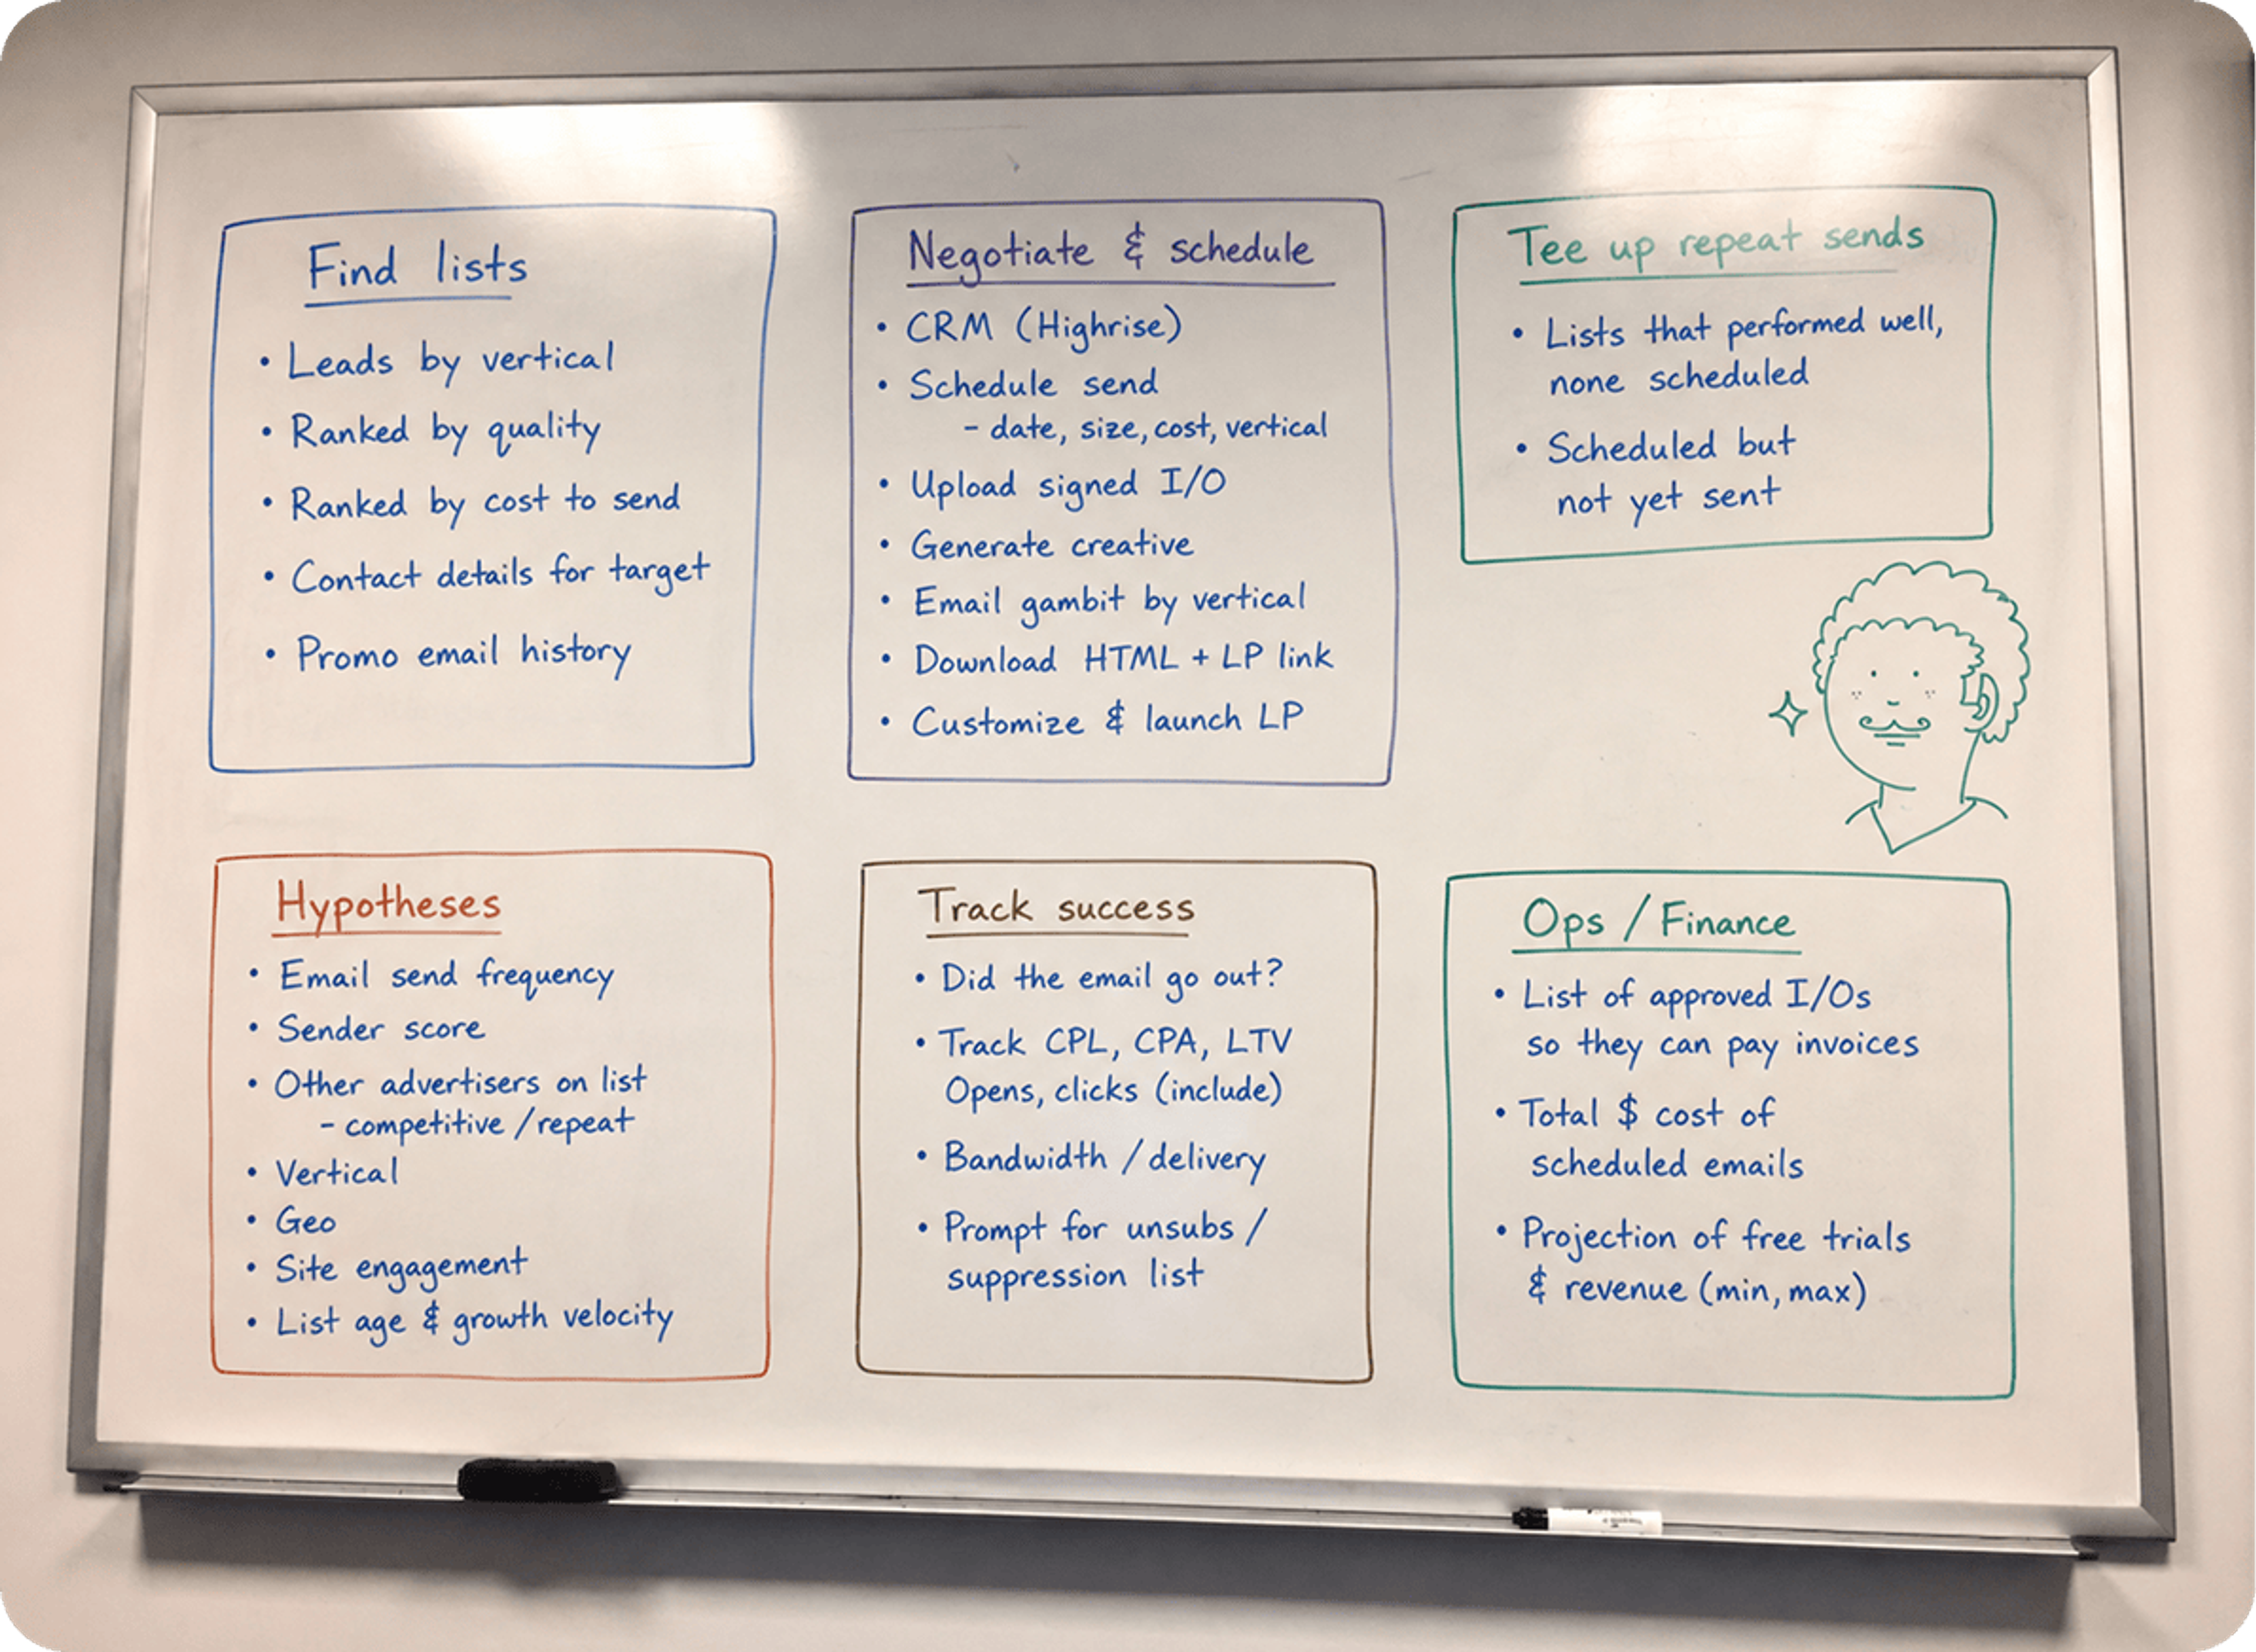 Find lists
• Leads by vertical
• Ranked by quality
• Ranked by cost to send
• Contact details for target
• Promo email history
Negotiate & schedule
• CRM (Highrise)
• Schedule send
- date, size, cost, vertical
• Upload signed I/O
• Generate creative
• Email gambit by vertical
• Download HTML + LP link
• Customize & launch LP
Tee up repeat sends
• Lists that performed well,
none scheduled
• Scheduled but
not yet sent
Hypotheses
• Email send frequency
• Sender score
• Other advertisers on list
- competitive / repeat
• Vertical
• Geo
• Site engagement
• List age & growth velocity
Track success
• Did the email go out?
• Track CPL, CPA, LTV
Opens, clicks (include)
• Bandwidth / delivery
• Prompt for unsubs /
suppression list
Ops / Finance
• List of approved I/Os
so they can pay invoices
• Total $ cost of
scheduled emails
• Projection of free trials
& revenue (min, max)